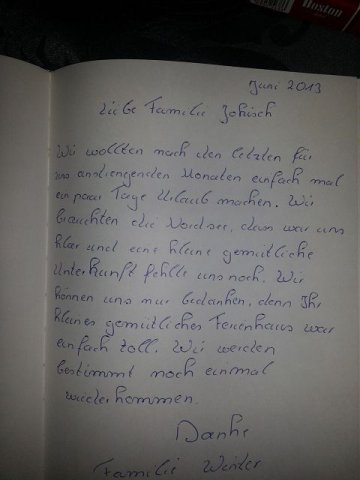 Boston
Juni 2013
Liebe Familie Johisch
Wir wollten nach den letzten für
uns anstrengenden Monaten einfach mal
ein paar Tage Urlaub machen. Wir
brauchten die Nordsee, dass war uns
klar und eine kleine gemütliche
Unterkunft fehlte uns noch. Wir
können uns nur bedanken, denn Ihr
kleines gemütliches Ferienhaus war
einfach toll. Wir werden
bestimmt noch einmal
wiederkommen.
Danke
Familie Winter